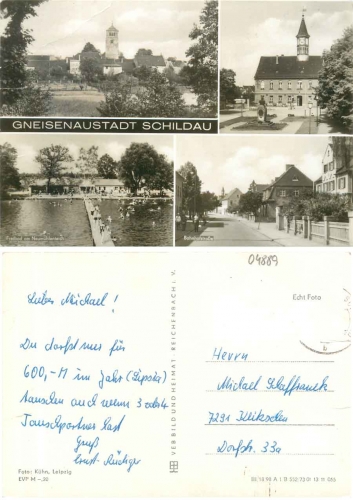 GNEISENAUSTADT SCHILDAU
Freibad am Neumühlenteich
Bahnhofstraße
04889
Lieber Michael!
Du darfst nur für
600,-M im Jahr (Lipsia)
tauschen und wenn 3 od. 4
Tauschpartner hast
Gruß
Ernst-Rüdiger
Foto: Kühn, Leipzig
EVP M -,20
VEB BILD UND HEIMAT REICHENBACH i. V.
Echt Foto
Herrn
Michael
7291
Dorfstr. 33a